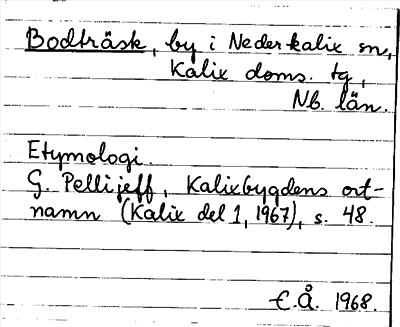 Bodträsk, by i Nederkalix sn,
Kalix doms. tg,
Nb. län.
Etymologi.
G. Pellijeff, Kalixbygdens ort-
namn (Kalix del 1, 1967), s. 48.
E.Å. 1968.